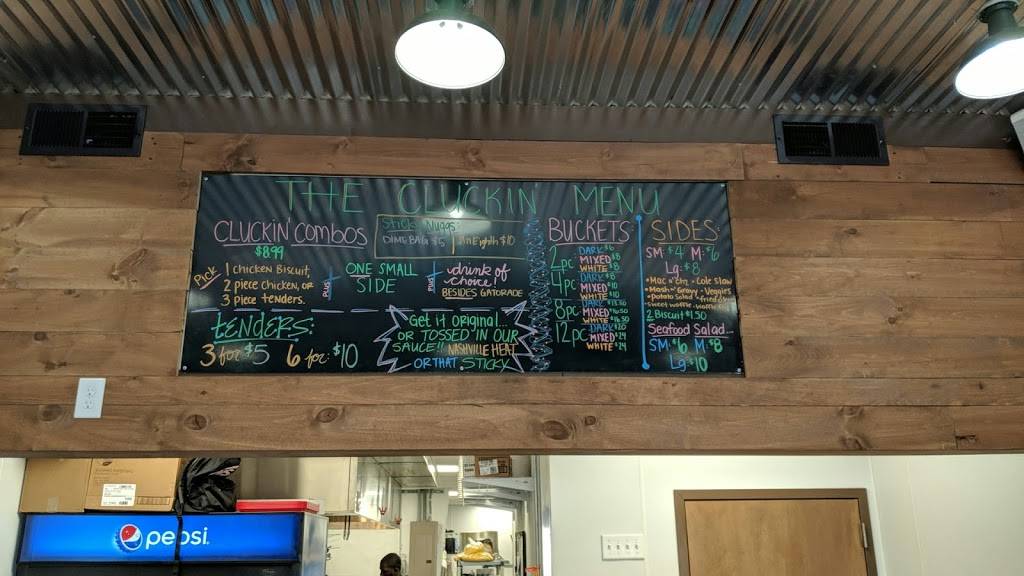 THE CLUCKIN' MENU
CLUCKIN' Combos
$8.99
Pick
1 Chicken Biscuit,
2 piece Chicken, or
3 piece tenders.
plus
ONE SMALL
SIDE
plus
drink of
choice!
BESIDES GATORADE
DIME BAG $5
An Eighth $10
tenders:
3 for $5 6 for $10
Get it original...
OR TOSSED IN OUR
SAUCE!! NASHVILLE HEAT
OR THAT STICKY
BUCKETS
2pc DARK $6
MIXED $8
WHITE $8
4pc DARK $8
MIXED $10
WHITE $10
8pc DARK
MIXED
WHITE
12pc DARK $20
MIXED $24
WHITE $24
SIDES:
SM $4 M $6
Lg $8
Mac n' Chz Cole Slaw
Mash n' Gravy Veggies
Potato Salad
2 Biscuit $1.50
Seafood Salad...
SM $6 M $8
Lg $10
pepsi